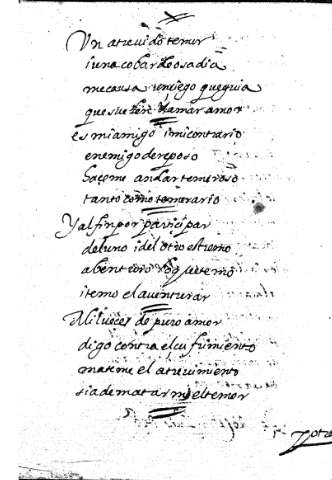 Un atreuido temor
i una cobarde osadia
me causa un ciego que guia
que suelen llamar amor
es mi amigo i mi contrario
enemigo de reposo
haçeme andar temeroso
tanto como temerario
Y al fin por participar
del uno i del otro estremo
abenturo lo que temo
i temo el auenturar
Mil ueces de puro amor
digo contra el sufrimiento
mateme el atreuimiento
si a de matarme el temor
otra